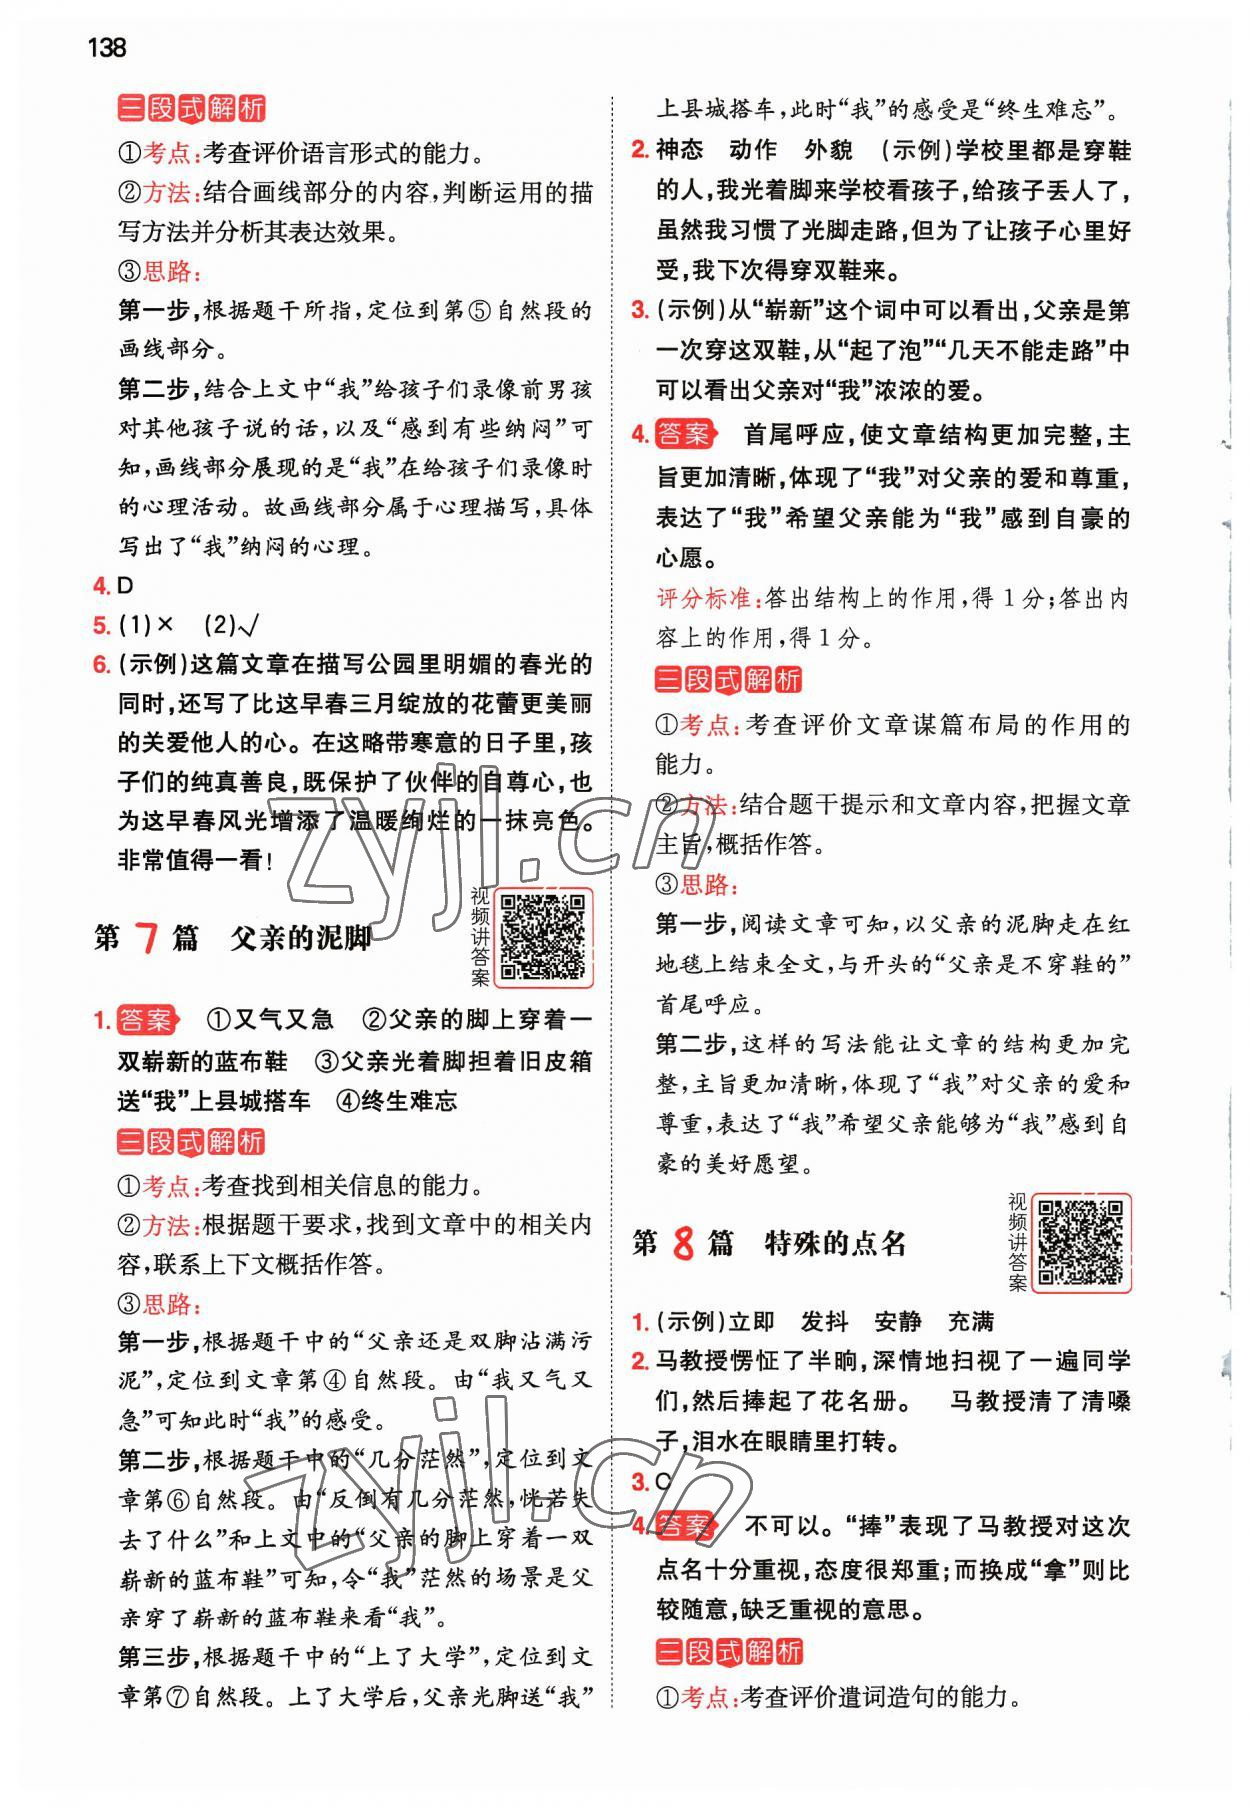 138
三段式解析
①考点:考查评价语言形式的能力。
②方法:结合画线部分的内容,判断运用的描
写方法并分析其表达效果。
③思路:
第一步,根据题干所指,定位到第⑤自然段的
画线部分。
第二步,结合上文中“我”给孩子们录像前男孩
对其他孩子说的话,以及“感到有些纳闷”可
知,画线部分展现的是“我”在给孩子们录像时
的心理活动。故画线部分属于心理描写,具体
写出了“我”纳闷的心理。
4. D
5. (1)× (2)√
6. (示例)这篇文章在描写公园里明媚的春光的
同时,还写了比这早春三月绽放的花蕾更美丽
的关爱他人的心。在这略带寒意的日子里,孩
子们的纯真善良,既保护了伙伴的自尊心,也
为这早春风光增添了温暖绚烂的一抹亮色。
非常值得一看!
第7篇 父亲的泥脚
视频讲答案
1. 答案 ①又气又急 ②父亲的脚上穿着一
双崭新的蓝布鞋 ③父亲光着脚担着旧皮箱
送“我”上县城搭车 ④终生难忘
三段式解析
①考点:考查找到相关信息的能力。
②方法:根据题干要求,找到文章中的相关内
容,联系上下文概括作答。
③思路:
第一步,根据题干中的“父亲还是双脚沾满污
泥”,定位到文章第④自然段。由“我又气又
急”可知此时“我”的感受。
第二步,根据题干中的“几分茫然”,定位到文
章第⑥自然段。由“反倒有几分茫然,恍若失
去了什么”和上文中的“父亲的脚上穿着一双
崭新的蓝布鞋”可知,令“我”茫然的场景是父
亲穿了崭新的蓝布鞋来看“我”。
第三步,根据题干中的“上了大学”,定位到文
章第⑦自然段。上了大学后,父亲光脚送“我”
上县城搭车,此时“我”的感受是“终生难忘”。
2. 神态 动作 外貌 (示例)学校里都是穿鞋
的人,我光着脚来学校看孩子,给孩子丢人了,
虽然我习惯了光脚走路,但为了让孩子心里好
受,我下次得穿双鞋来。
3. (示例)从“崭新”这个词中可以看出,父亲是第
一次穿这双鞋,从“起了泡”“几天不能走路”中
可以看出父亲对“我”浓浓的爱。
4. 答案 首尾呼应,使文章结构更加完整,主
旨更加清晰,体现了“我”对父亲的爱和尊重,
表达了“我”希望父亲能为“我”感到自豪的
心愿。
评分标准:答出结构上的作用,得1分;答出内
容上的作用,得1分。
三段式解析
①考点:考查评价文章谋篇布局的作用的
能力。
②方法:结合题干提示和文章内容,把握文章
主旨,概括作答。
③思路:
第一步,阅读文章可知,以父亲的泥脚走在红
地毯上结束全文,与开头的“父亲是不穿鞋的”
首尾呼应。
第二步,这样的写法能让文章的结构更加完
整,主旨更加清晰,体现了“我”对父亲的爱和
尊重,表达了“我”希望父亲能够为“我”感到自
豪的美好愿望。
第8篇 特殊的点名
视频讲答案
1. (示例)立即 发抖 安静 充满
2. 马教授愣怔了半晌,深情地扫视了一遍同学
们,然后捧起了花名册。 马教授清了清嗓
子,泪水在眼睛里打转。
3. C
4. 答案 不可以。“捧”表现了马教授对这次
点名十分重视,态度很郑重;而换成“拿”则比
较随意,缺乏重视的意思。
三段式解析
①考点:考查评价遣词造句的能力。
zyjl.cn
zyjl.cn